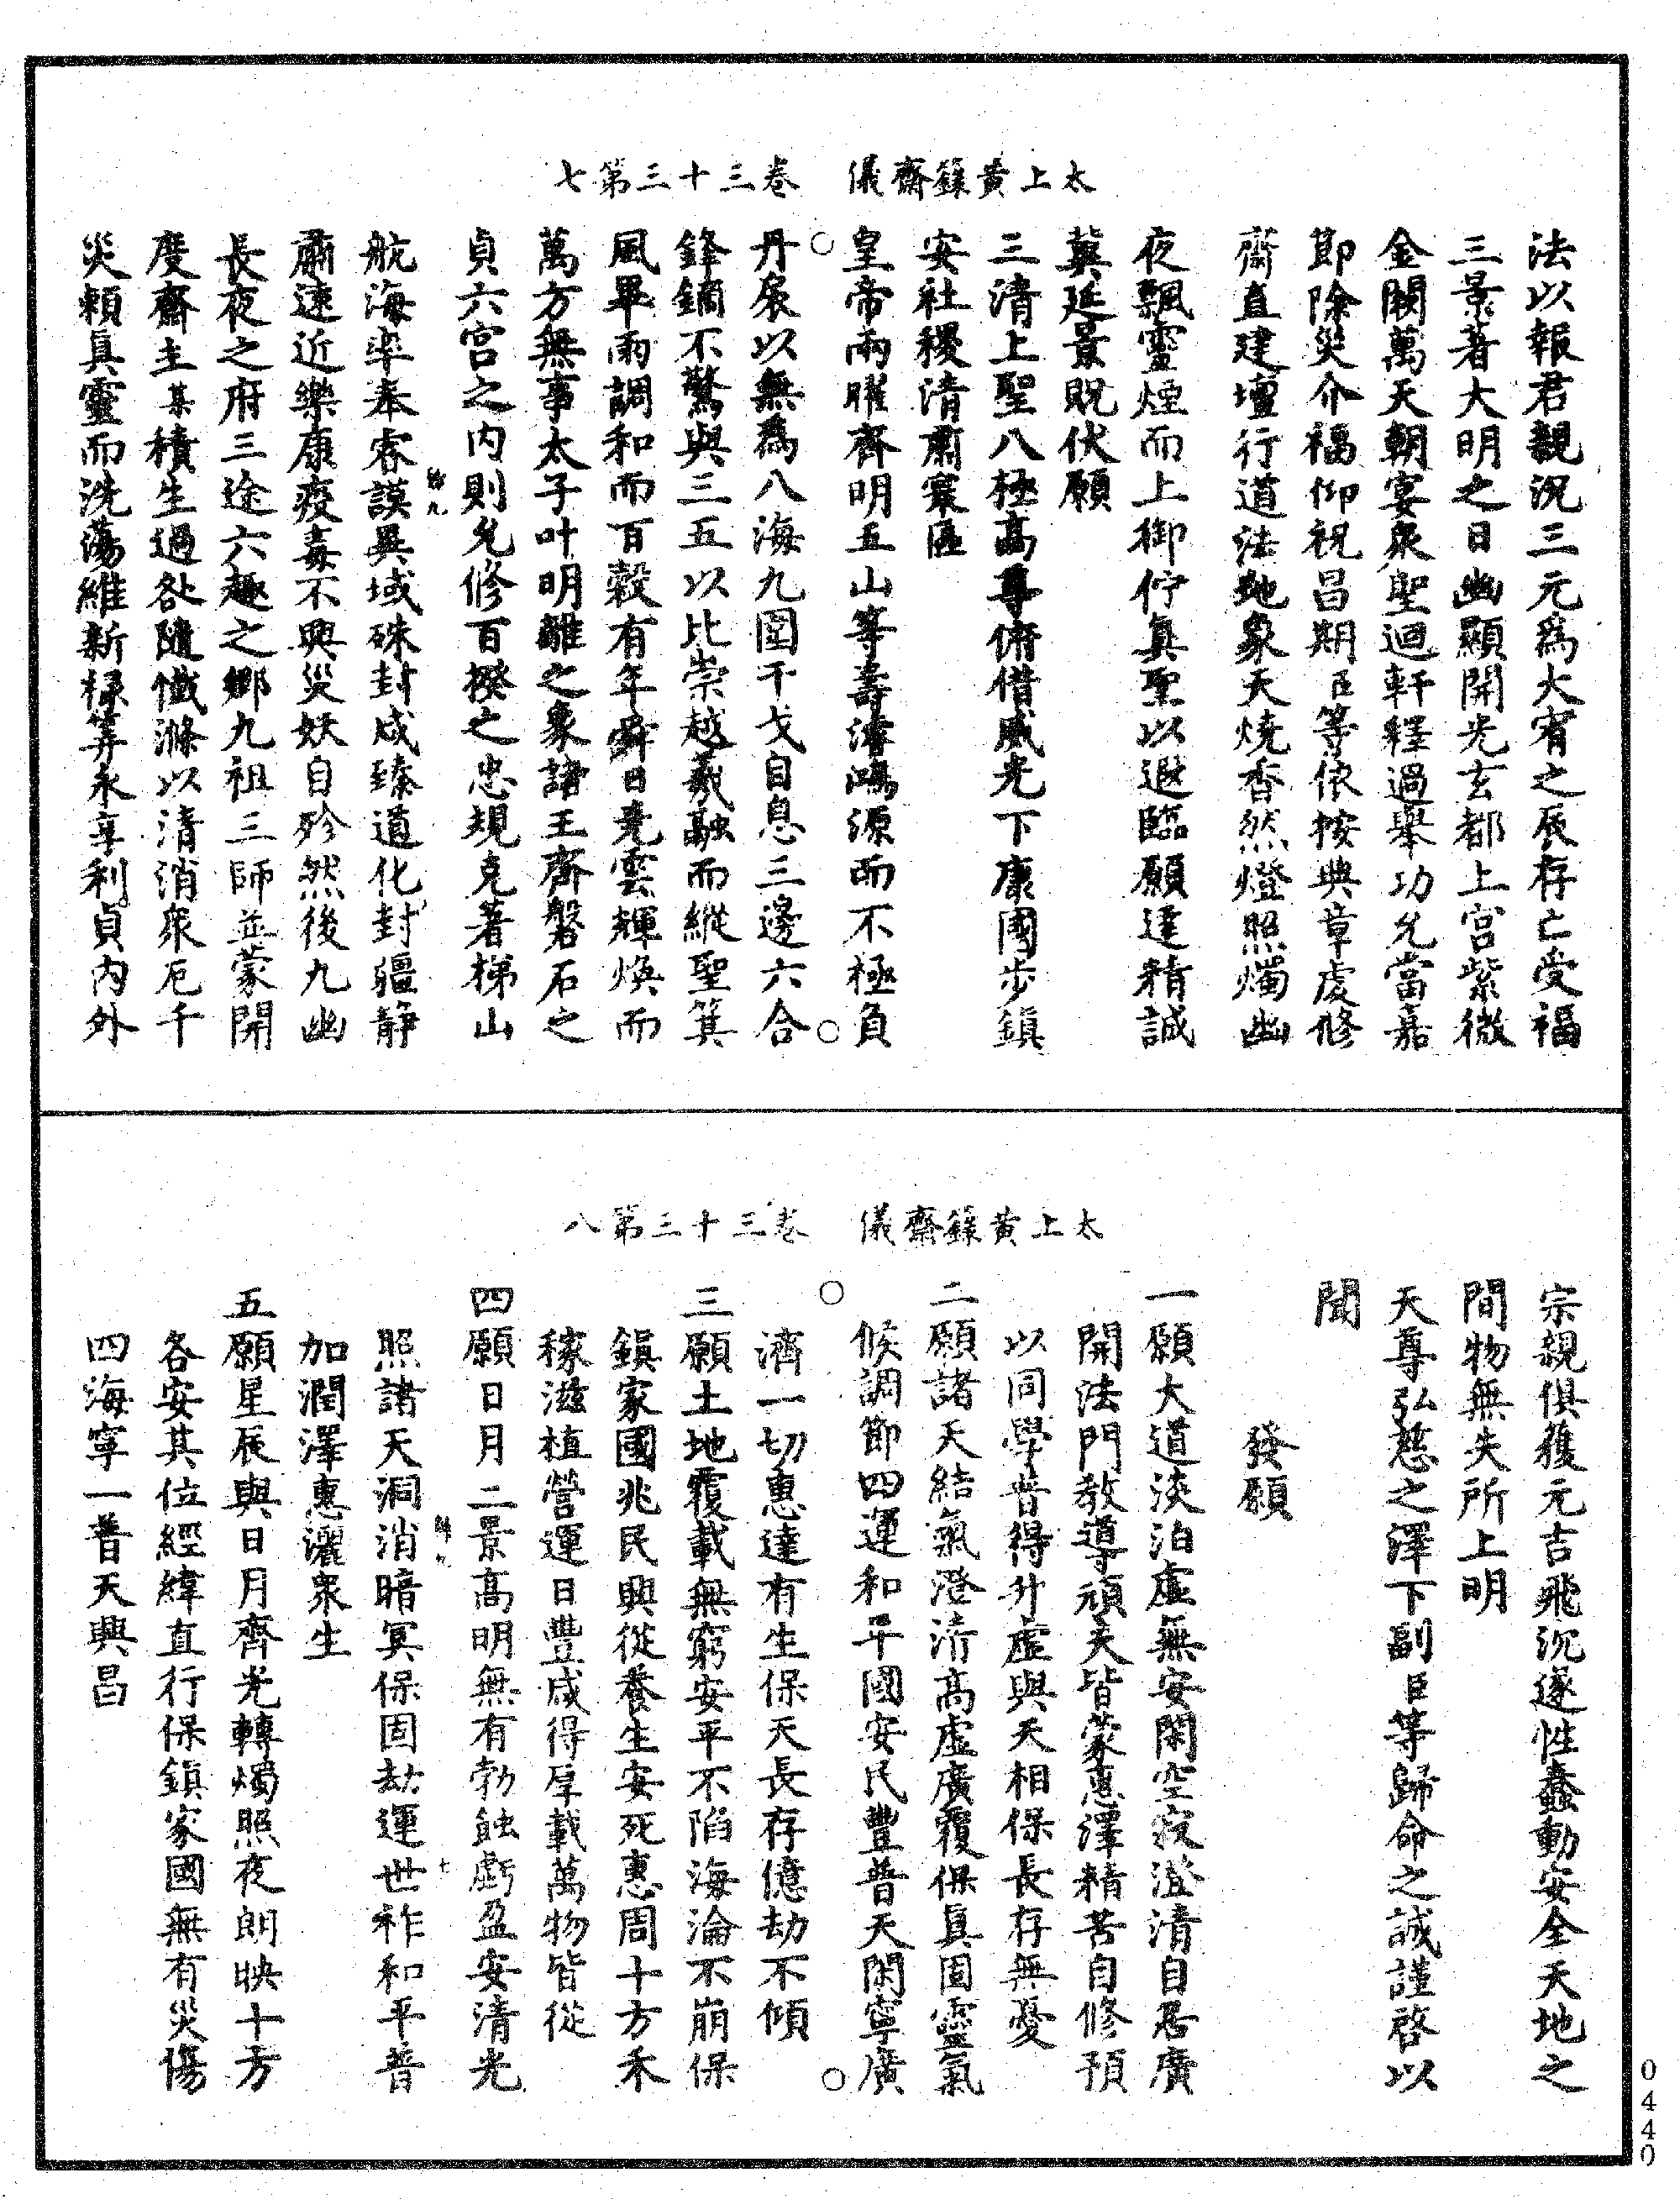 太上黃籙齋儀　卷三十三第七
法以報君親況三元爲大宥之辰存亡受福
三景著大明之日幽顯開光玄都上宮紫微
金闕萬天朝宴衆聖迴軒釋過舉功允當嘉
節除災介福仰祝昌期臣等依按典章虔修
齋直建壇行道法地象天燒香然燈照燭幽
夜飄靈煙而上御佇眞聖以遐臨願達精誠
冀延景貺伏願
三清上聖八極高尊俯借威光下康國步鎮
安社稷清肅寰區
皇帝兩曜齊明五山等壽濬鴻源而不極負
丹扆以無爲八海九圍干戈自息三邊六合
鋒鏑不驚與三五以比崇越羲融而縱聖箕
風畢雨調和而百穀有年舜日堯雲輝煥而
萬方無事太子叶明離之象諸王齊磐石之
貞六宮之內則允修百揆之忠規克著梯山
航海率奉睿謨異域殊封咸臻道化封疆靜
肅遠近樂康疫毒不興災妖自殄然後九幽
長夜之府三途六趣之鄉九祖三師並蒙開
度齋主某積生過咎隨懺滌以清消衆厄千
災賴眞靈而洗蕩維新祿筭永享利貞內外
太上黃籙齋儀　卷三十三第八
宗親俱獲元吉飛沉遂性蠢動安全天地之
間物無失所上明
天尊弘慈之澤下副臣等歸命之誠謹啓以
聞
發願
一願大道淡泊虛無安閑空寂澄清自居廣
開法門教導頑夭皆蒙惠澤精苦自修預
以同學普得升虛與天相保長存無憂
二願諸天結氣澄清高虛廣覆保眞固靈氣
候調節四運和平國安民豐普天閑寧廣
濟一切惠達有生保天長存億劫不傾
三願土地覆載無窮安平不陷海淪不崩保
鎮家國兆民興從養生安死惠周十方禾
稼滋植營運日豐咸得厚載萬物皆從
四願日月二景高明無有勃蝕虧盈安清光
照諸天洞消暗冥保固劫運世祚和平普
加潤澤惠灑衆生
五願星辰與日月齊光轉燭照夜朗映十方
各安其位經緯直行保鎮家國無有災傷
四海寧一普天興昌
0440